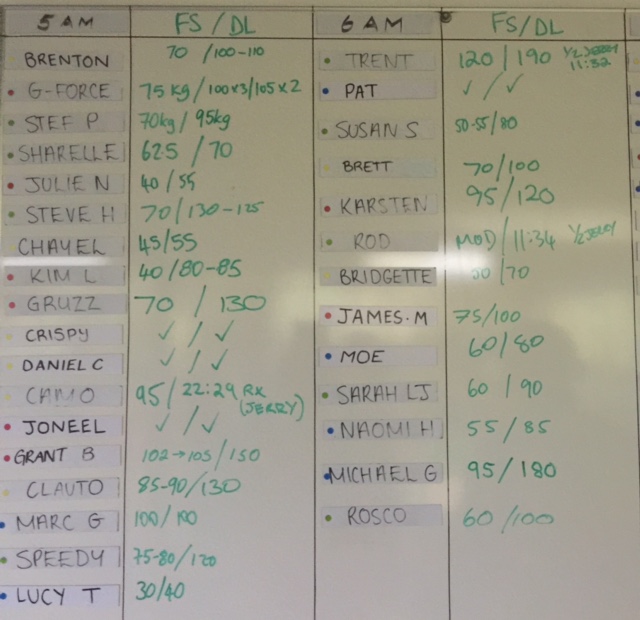 5 AM FS / DL
BRENTON 70 /100-110
G-FORCE 75 kg / 100x3/105x2
STEF P 70kg / 95kg
SHARELLE 62.5 / 70
JULIE N 40 / 55
STEVE H 70 / 130-125
CHAYEL 45/55
KIM L 40 / 80-85
GRUZZ 70 / 130
CRISPY ✓ / ✓
DANIEL C ✓ / ✓
CAMO 95 / 22:29 RX
(JERRY)
JONEEL ✓ / ✓
GRANT B 102→105 / 150
CLAUTO 85-90/130
MARC G 100/
SPEEDY 75-80/120
LUCY T 30/40
6 AM FS/DL
TRENT 120 / 190 1/2 JERRY
11:32
PAT ✓ / ✓
SUSAN S 50-55/80
BRETT 70/100
KARSTEN 95/120
ROD MOD / 11:34 1/2 JERRY
BRIDGETTE 50 /70
JAMES.M 75/100
MOE 60/80
SARAH LJ 60 / 90
NAOMI H 55 / 85
MICHAEL G 95/180
ROSCO 60 /100